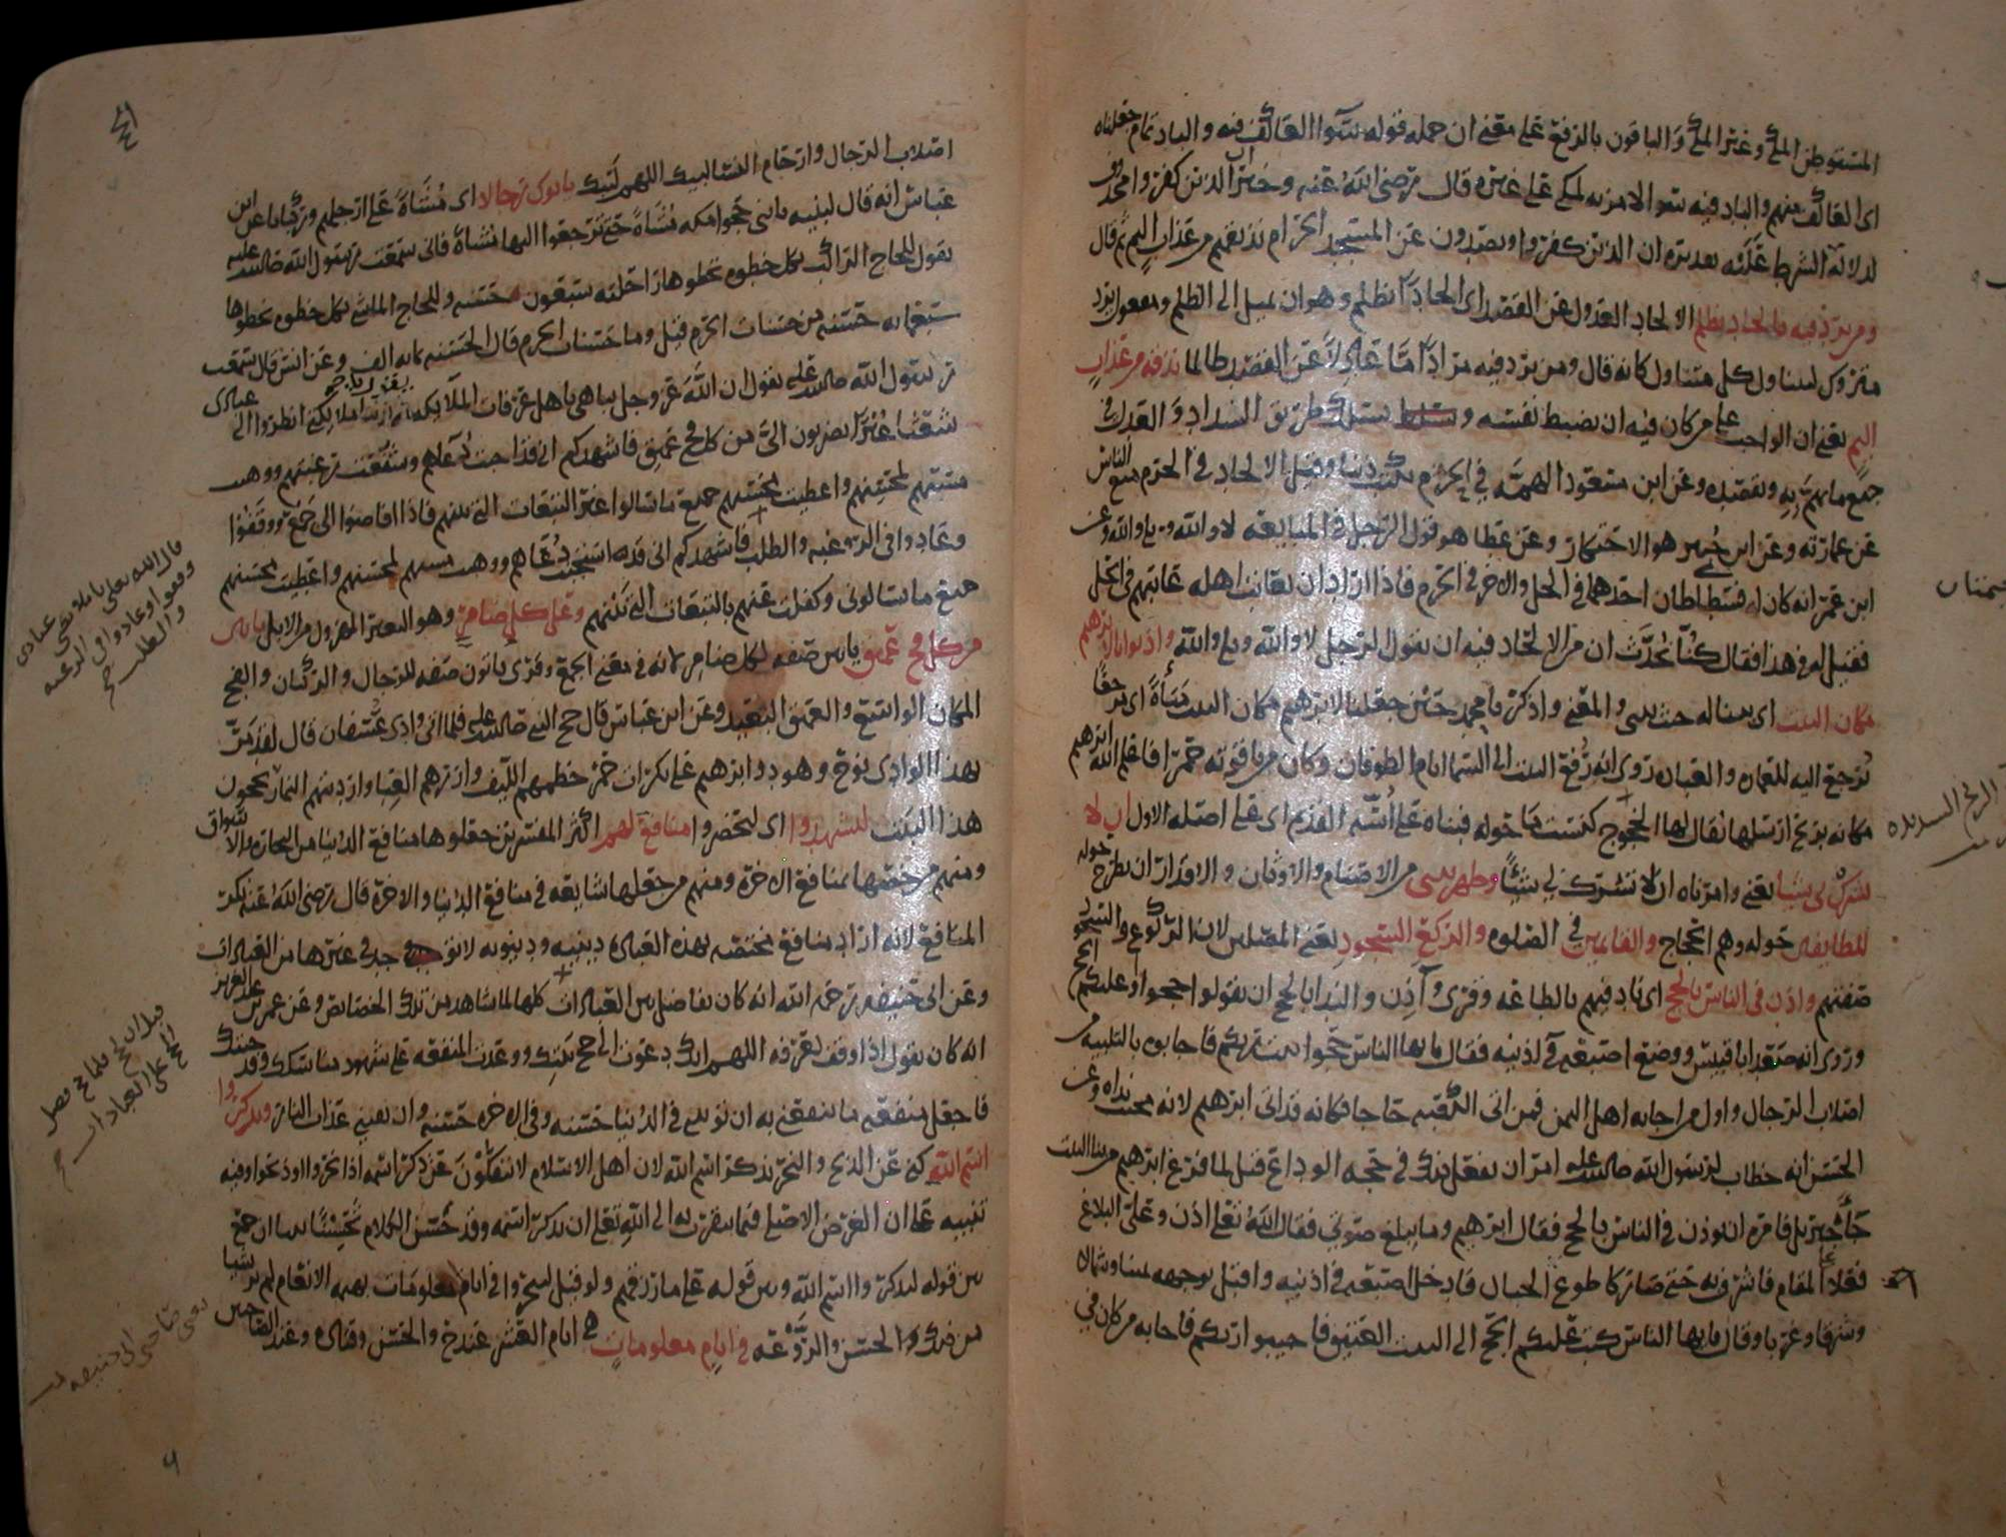 المستوطن المكي وغير المكي والباقون بالرفع على معنى ان جملة قوله سواء العاكف فيه والباد تمام جعلناه
اى العاكف منهم والباد فيه سوا لا مزية لمكي على غيره قال رضى الله عنه وخبر ان الذين كفروا محذوف
لدلالة الشرط عليه بعد تقديره ان الذين كفروا ويصدون عن المسجد الحرام نذيقهم من عذاب اليم ثم قال
ومن يرد فيه بالحاد بظلم الالحاد العدول عن القصد اى الحادا بظلم وهو ان يميل الى الظلم ومفعول يرد
متروك ليتناول كل متناول كانه قال ومن يرد فيه مرادا ما عادلا عن القصد ظالما نذقه من عذاب
اليم يعني ان الواجب على من كان فيه ان يضبط نفسه ويسلك طريق السداد والعدل في
جميع ما يهم به ويقصده وعن ابن مسعود الهمة في الحرم تكتب ذنبا وقيل الالحاد في الحرم منع الناس
عن عمارته وعن ابن جبير هو الاحتكار وعن عطا هو قول الرجل في المبايعة لا والله وبلى والله وعن
ابن عمر انه كان له فسطاطان احدهما في الحل والاخر في الحرم فاذا اراد ان يعاتب اهله عاتبهم في الحل
فقيل له في هذا فقال كنا نحدث ان من الالحاد فيه ان يقول الرجل لا والله وبلى والله واذ بوانا لابرهيم
مكان البيت اى والمعنى واذكر يا محمد حين جعلنا لابرهيم مكان البيت مباءة اى مرجعا
يرجع اليه للعمارة والعبادة روى انه رفع البيت الى السما ايام الطوفان وكان من ياقوتة حمرا فاعلم الله ابرهيم
مكانه بريح ارسلها يقال لها الخجوج كنست ما حوله فبناه على أسّه القديم اى على اصله الاول ان لا
تشرك بى شيا يعنى وامرناه ان لا تشرك بي شيئا وطهر بيتى من الاصنام والاوثان والاقذار ان تطرح حوله
للطايفين حوله وهم الحجاج والقايمين في الصلوة والركع السجود يعنى المصلين لان الركوع والسجود
صفتهم واذن فى الناس بالحج اى ناد فيهم بالطاعة وقرى وآذن والندا بالحج ان يقولوا حجوا او عليكم الحج
وروى انه صعد ابا قبيس ووضع اصبعيه في اذنيه فقال يا ايها الناس حجوا بيت ربكم فاجابوه بالتلبية من
اصلاب الرجال واول من اجابه اهل اليمن فمن اتى الكعبة حاجا فكانه قد اتى ابرهيم لانه مجيب نداه وعن
الحسن انه خطاب لرسول الله صلى الله عليه امر ان يفعل ذلك في حجة الوداع قيل لما فرغ ابرهيم من بنا البيت
جاء جبريل فامره ان يوذن في الناس بالحج فقال ابرهيم وما يبلغ صوتي فقال الله تعلى اذن وعلى البلاغ
فعلا على المقام فاشرف به حتى صار كاطول الجبال فادخل اصبعيه في اذنيه واقبل بوجهه يمينا وشمالا
وشرقا وغربا وقال يا ايها الناس كتب عليكم الحج الى البيت العتيق فاجيبوا ربكم فاجابه من كان في
الريح الشديدة
اصلاب الرجال وارحام النسا لبيك اللهم لبيك ياتوك رجالا اى مشاة على ارجلهم وركبانا عن ابن
عباس انه قال لبنيه يا بنى حجوا من مكه مشاة حتى ترجعوا اليها مشاة فانى سمعت رسول الله صلى الله عليه
يقول للحاج الراكب بكل خطوه تخطوها راحلته سبعون حسنه وللحاج الماشي بكل خطوه يخطوها
سبعمايه حسنه من حسنات الحرم قيل وما حسنات الحرم قال الحسنه بمايه الف وعن انس قال سمعت
رسول الله صلى الله عليه يقول ان الله عز وجل يباهى باهل عرفات الملايكه يقول يا ملايكتى انظروا الى عبادى
شعثا غبرا يضربون الى من كل فج عميق فاشهدكم انى قد اجبت دعاهم وشفعت رغبتهم ووهبت
مسيهم لمحسنهم واعطيت محسنهم جميع ما سالوا غير التبعات التى بينهم فاذا افاضوا الى جمع ووقفوا
وعادوا فى الرغبه والطلب فاشهدكم انى قد استجبت دعاهم ووهبت مسيهم لمحسنهم واعطيت محسنهم
جميع ما سالونى وكفلت عنهم بالتبعات التى بينهم وعلى كل ضامر وهو البعير المهزول من الابل ياتين
من كل فج عميق ياتين صفه لكل ضامر لانه في معنى الجمع وقرى ياتون صفه للرجال والركبان والفج
المكان الواسع والعميق البعيد وعن ابن عباس قال حج النبى صلى الله عليه فلما اتى وادى عسفان قال لقد مر
بهذا الوادى نوح وهود وابرهيم على بكران حمر خطمهم الليف وازرهم العبا وارديتهم النمار يحجون
هذا البيت ليشهدوا اى ليحضروا منافع لهم اكثر المفسرين جعلوها منافع الدنيا من التجارة والاسواق
ومنهم من خصها بمنافع الاخرة ومنهم من جعلها شايعه في منافع الدنيا والاخرة قال رضى الله عنه نكر
المنافع لانه اراد منافع مختصه بهذه العباده دينيه ودنيويه لا توجد فى غيرها من العبادات
وعن ابى حنيفه رحمه الله انه كان يفاضل بين العبادات كلها لما شاهد من تلك الخصايص وعن عمر بن عبد العزيز
انه كان يقول اذا وقف بعرفه اللهم انك دعوت الى حج بيتك ووعدت المنفعه على شهود مناسكك وقد جيتك
فاجعل منفعه ما تنفعنى به ان توتينى فى الدنيا حسنه وفى الاخره حسنه وان تقينى عذاب النار ويذكروا
اسم الله كنى عن الذبح والنحر بذكر اسم الله لان اهل الاسلام لا ينفكون عن ذكر اسمه اذا نحروا او ذبحوا وفيه
تنبيه على ان الغرض الاصلى فيما يتقرب به الى الله تعلى ان يذكر اسمه وقد حسن الكلام تحسينا بينا ان جمع
بين قوله ليذكروا اسم الله وبين قوله على ما رزقهم ولو قيل لينحروا فى ايام معلومات بهيمة الانعام لم تر شيا
من ذلك الحسن والروعه فى ايام معلومات هى ايام العشر عند ح والحسن وقتاده وعند صاحبيه
قال الله تعلى يا ملايكتى عبادى
وقفوا وعادوا فى الرغبه
والطلب
قيل ان ح فلما حج فضل
الحج على العبادات
يعنى صاحبى ابى حنيفه